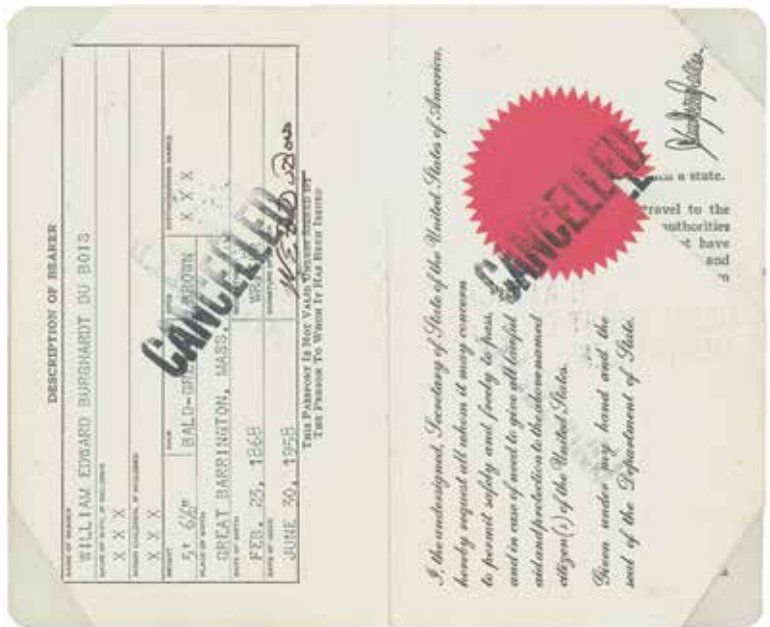 DESCRIPTION OF BEARER
NAME OF BEARER
WILLIAM EDWARD BURGHARDT DU BOIS
X X X
X X X
HEIGHT HAIR EYES DISTINGUISHING MARKS
BALD-GREY BROWN X X X
PLACE OF BIRTH
GREAT BARRINGTON, MASS.
DATE OF BIRTH
FEB. 23, 1868
DATE OF ISSUE
JUNE 30, 1958
CANCELLED
THIS PASSPORT IS NOT VALID UNLESS SIGNED BY
THE PERSON TO WHOM IT HAS BEEN ISSUED
I, the undersigned, Secretary of State of the United States of America,
hereby request all whom it may concern
to permit safely and freely to pass,
and in case of need to give all lawful
aid and protection to the above named
citizen(s) of the United States.
Given under my hand and the
seal of the Department of State.
CANCELLED
a state.
travel to the
authorities
have
and